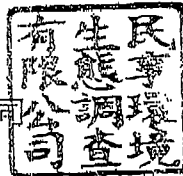 民享環境
生態調查
有限公司
司